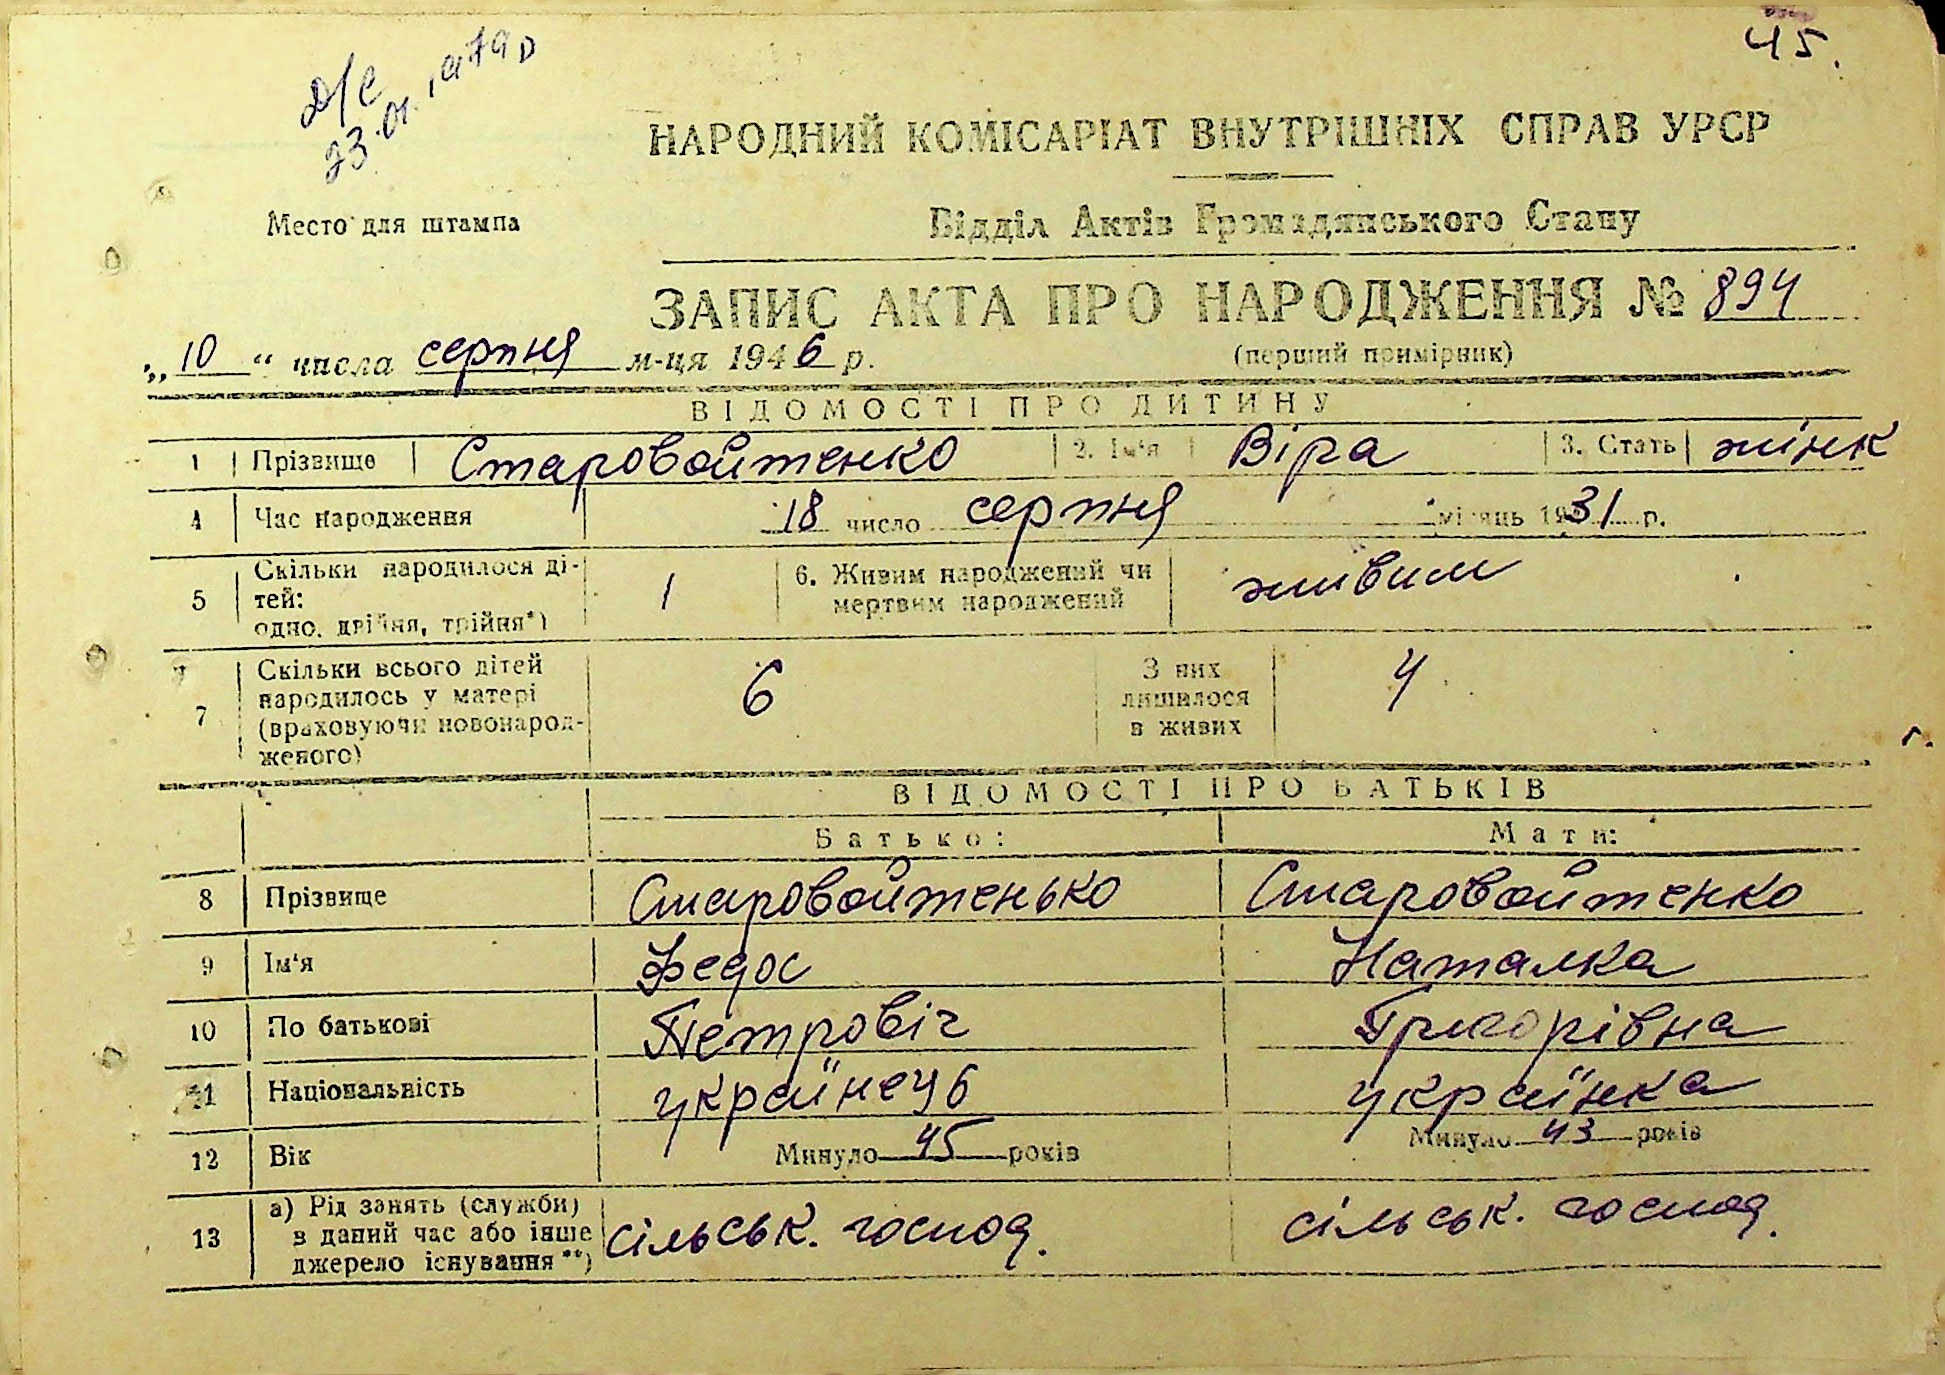 45.
23.01.
НАРОДНИЙ КОМІСАРІАТ ВНУТРІШНІХ СПРАВ УРСР
Место для штампа
Відділ Актів Громадянського Стану
ЗАПИС АКТА ПРО НАРОДЖЕННЯ № 894
„10“ числа серпня м-ця 1946 р.
(перший примірник)
ВІДОМОСТІ ПРО ДИТИНУ
1 Прізвище Старовойтенко 2. Ім'я Віра 3. Стать жінк
4 Час народження 18 число серпня місяць 1931 р.
5 Скільки народилося ді-
тей:
одно, двійня, трійня*)
1
6. Живим народжений чи
мертвим народжений
живим
7 Скільки всього дітей
народилось у матері
(враховуючи новонарод-
женого)
6
З них
лишилося
в живих
4
ВІДОМОСТІ ПРО БАТЬКІВ
Батько: Мати:
8 Прізвище Старовойтенько Старовойтенко
9 Ім'я Федос Наталка
10 По батькові Петровіч Григорівна
11 Національність українець українка
12 Вік Минуло 45 років Минуло 43 років
13 а) Рід занять (служби)
в даний час або інше
джерело існування**)
сільськ. господ. сільськ. господ.